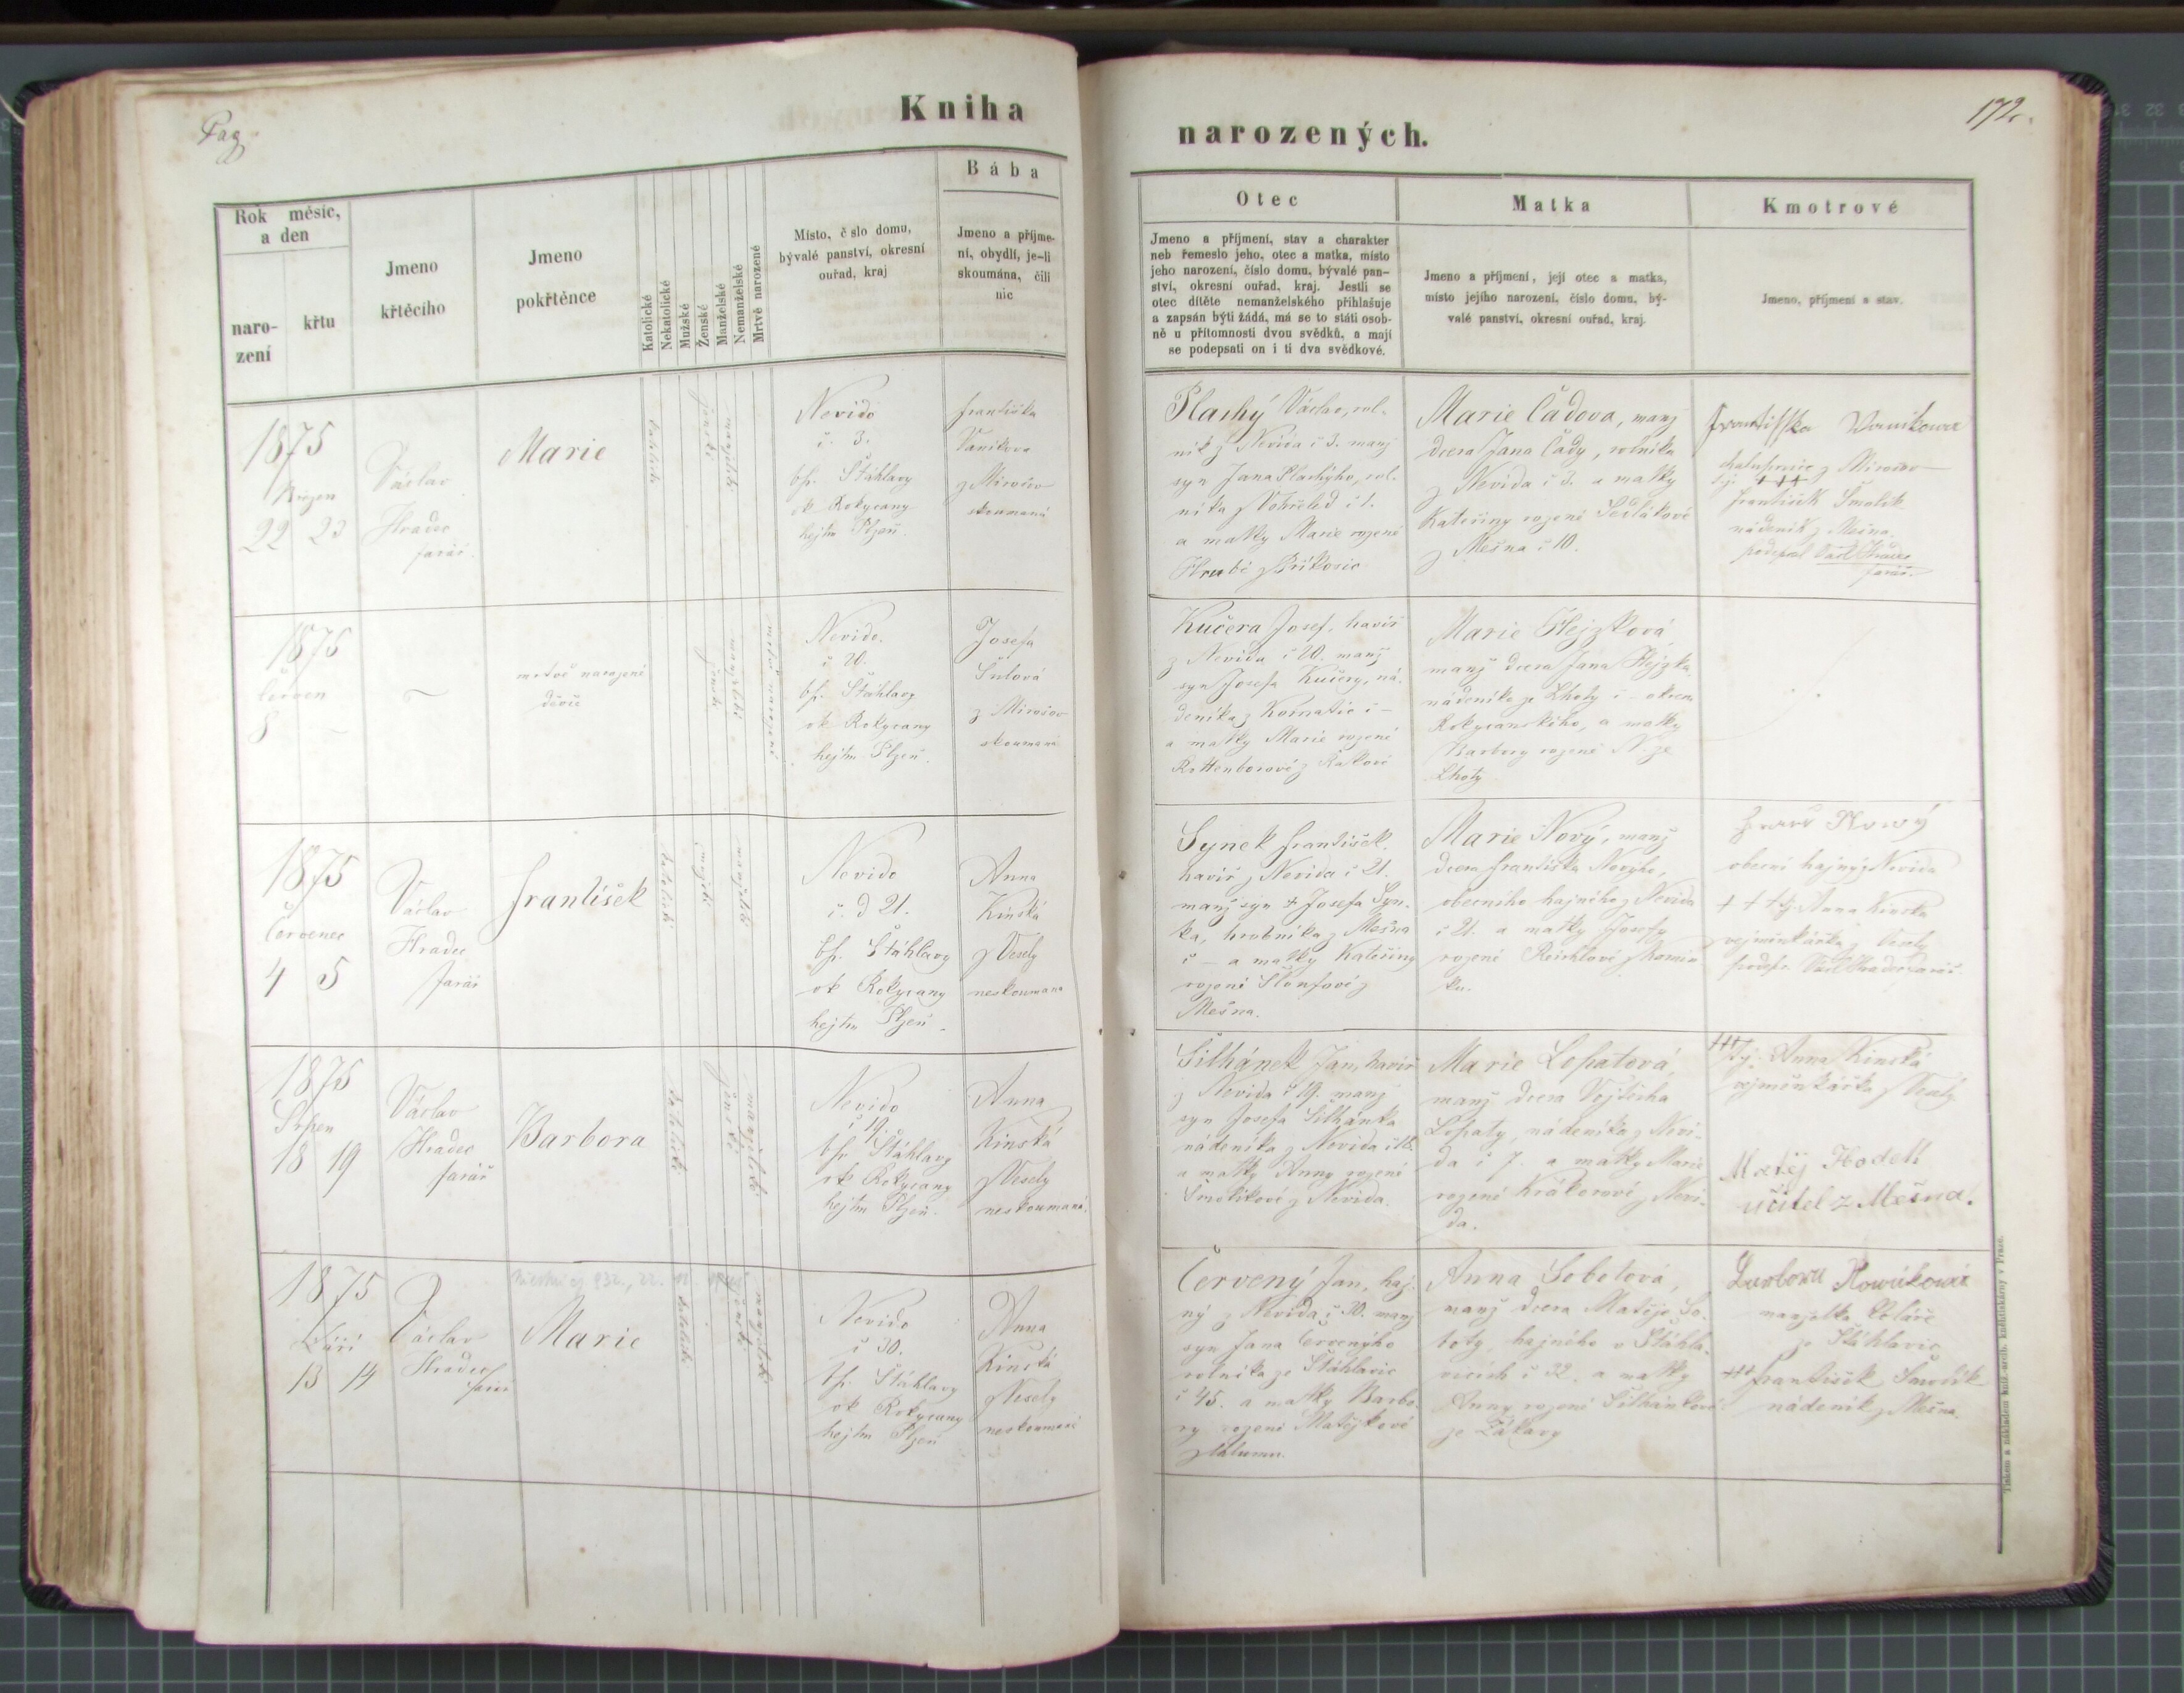 Pag.
Kniha
narozených.
172.
Rok měsíc,
a den
naro-
zení
křtu
Jmeno
křtěcího
Jmeno
pokřtěnce
Katolické
Nekatolické
Mužské
Ženské
Manželské
Nemanželské
Mrtvě narozené
Místo, č slo domu,
bývalé panství, okresní
ouřad, kraj
Bába
Jmeno a příjme-
ní, obydlí, je-li
skoumána, čili
nic
Otec
Jmeno a příjmení, stav a charakter
neb řemeslo jeho, otec a matka, místo
jeho narození, číslo domu, bývalé pan-
ství, okresní ouřad, kraj. Jestli se
otec dítěte nemanželského přihlašuje
a zapsán býti žádá, má se to státi osob-
ně u přítomnosti dvou svědků, a mají
se podepsati on i ti dva svědkové.
Matka
Jmeno a příjmení, její otec a matka,
místo jejího narození, číslo domu, bý-
valé panství, okresní ouřad, kraj.
Kmotrové
Jmeno, příjmení a stav.
1875
22 23
Václav
Hradec
farář.
Marie
Nevido
č. 3.
bp. Štáhlavy
ok Rokycany
hejtm Plzeň.
Františka
Vaníkova
z Mirošov
skoumaná
Plachý Václav, rol-
ník z Nevida č 3. manž
syn Jana Plachýho, rol-
níka č 1.
a matky Marie rozené
Hrubé z Příkosic
Marie Čadova, manž
dcera Jana Čady, rolníka
z Nevida č 3. a matky
Kateřiny rozené
z Mešna č 10.
Františka Vanikowa
z Mirošov
+++
František Smolík
nádeník z Mešna.
podepsal Václ Hradec
farář.
1875
Červen
8 –
mrtvě narozené
děvče
Nevido.
č 20.
bp. Štáhlavy
ok Rokycany
hejtm Plzeň.
Josefa
Šulová
z Mirošov
skoumaná
Kučera Josef, havíř
z Nevida č 20. manž
syn Josefa Kučery, ná-
deníka z Kornatic č –
a matky Marie rozené
Marie Hejzková,
manž dcera Jana Hejzka
nádeníka ze Lhoty č – okresu
Rokycanského, a matky
Barbory rozené N. ze
Lhoty
1875
Červenec
4 5
Václav
Hradec
farář
František
Nevido
č. d 21.
bp. Štáhlavy
ok Rokycany
hejtm Plzeň.
Anna
Kinská
z Veselý
neskoumana
Synek František,
havíř z Nevida č 21.
manž syn + Josefa Syn-
ka, hrobníka z Mešna
č – a matky Kateřiny
rozené
Mešna.
Marie Nový, manž
dcera Františka Nového,
obecního hajného z Nevida
č 21. a matky Josefy
rozené Reichlové z Komár
ku.
Nowý
obecní hajný z Nevida
+ + + Anna Kinská
vejminkářka z Veselý
podps. Václ Hradec farář.
1875
Srpen
18 19
Václav
Hradec
farář
Barbora
Nevido
č 19.
bp Štáhlavy
ok Rokycany
hejtm Plzeň.
Anna
Kinská
z Veselý
neskoumaná.
Šilhánek Jan, havíř
z Nevida č 19. manž
syn Josefa Šilhánka
nádeníka z Nevida č
a matky Anny rozené
Smolíkové z Nevida.
Marie Lopatová,
manž dcera Vojtěcha
Lopaty, nádeníka z Nevi-
da č 7. a matky Marie
rozené Krákorové z Nevi-
da.
+++ Anna Kinská
vejminkářka z Veselý
Matěj Hodek
učitel z Mešna.
1875
Září
13 14
Václav
Hradec
farář
Marie
Nevido
č 30.
bp. Štáhlavy
ok Rokycany
hejtm Plzeň
Anna
Kinská
z Veselý
Červený Jan, haj-
ný z Nevida č 30. manž
syn Jana Červenýho
rolníka ze Štáhlavic
č 45. a matky Barbo-
ry rozené Matějkové
Anna Sobotová,
manž dcera Matěje So-
boty, hajného v Štáhla-
vicích č 32. a matky
Anny rozené Šilhánkové
ze Žákavy
Barbora Nowákowá
manželka koláře
ze Štáhlavic
+++ František Smolík
nádeník z Mešna.
Tiskem a nákladem kníž. arcib. knihtiskárny v Praze.